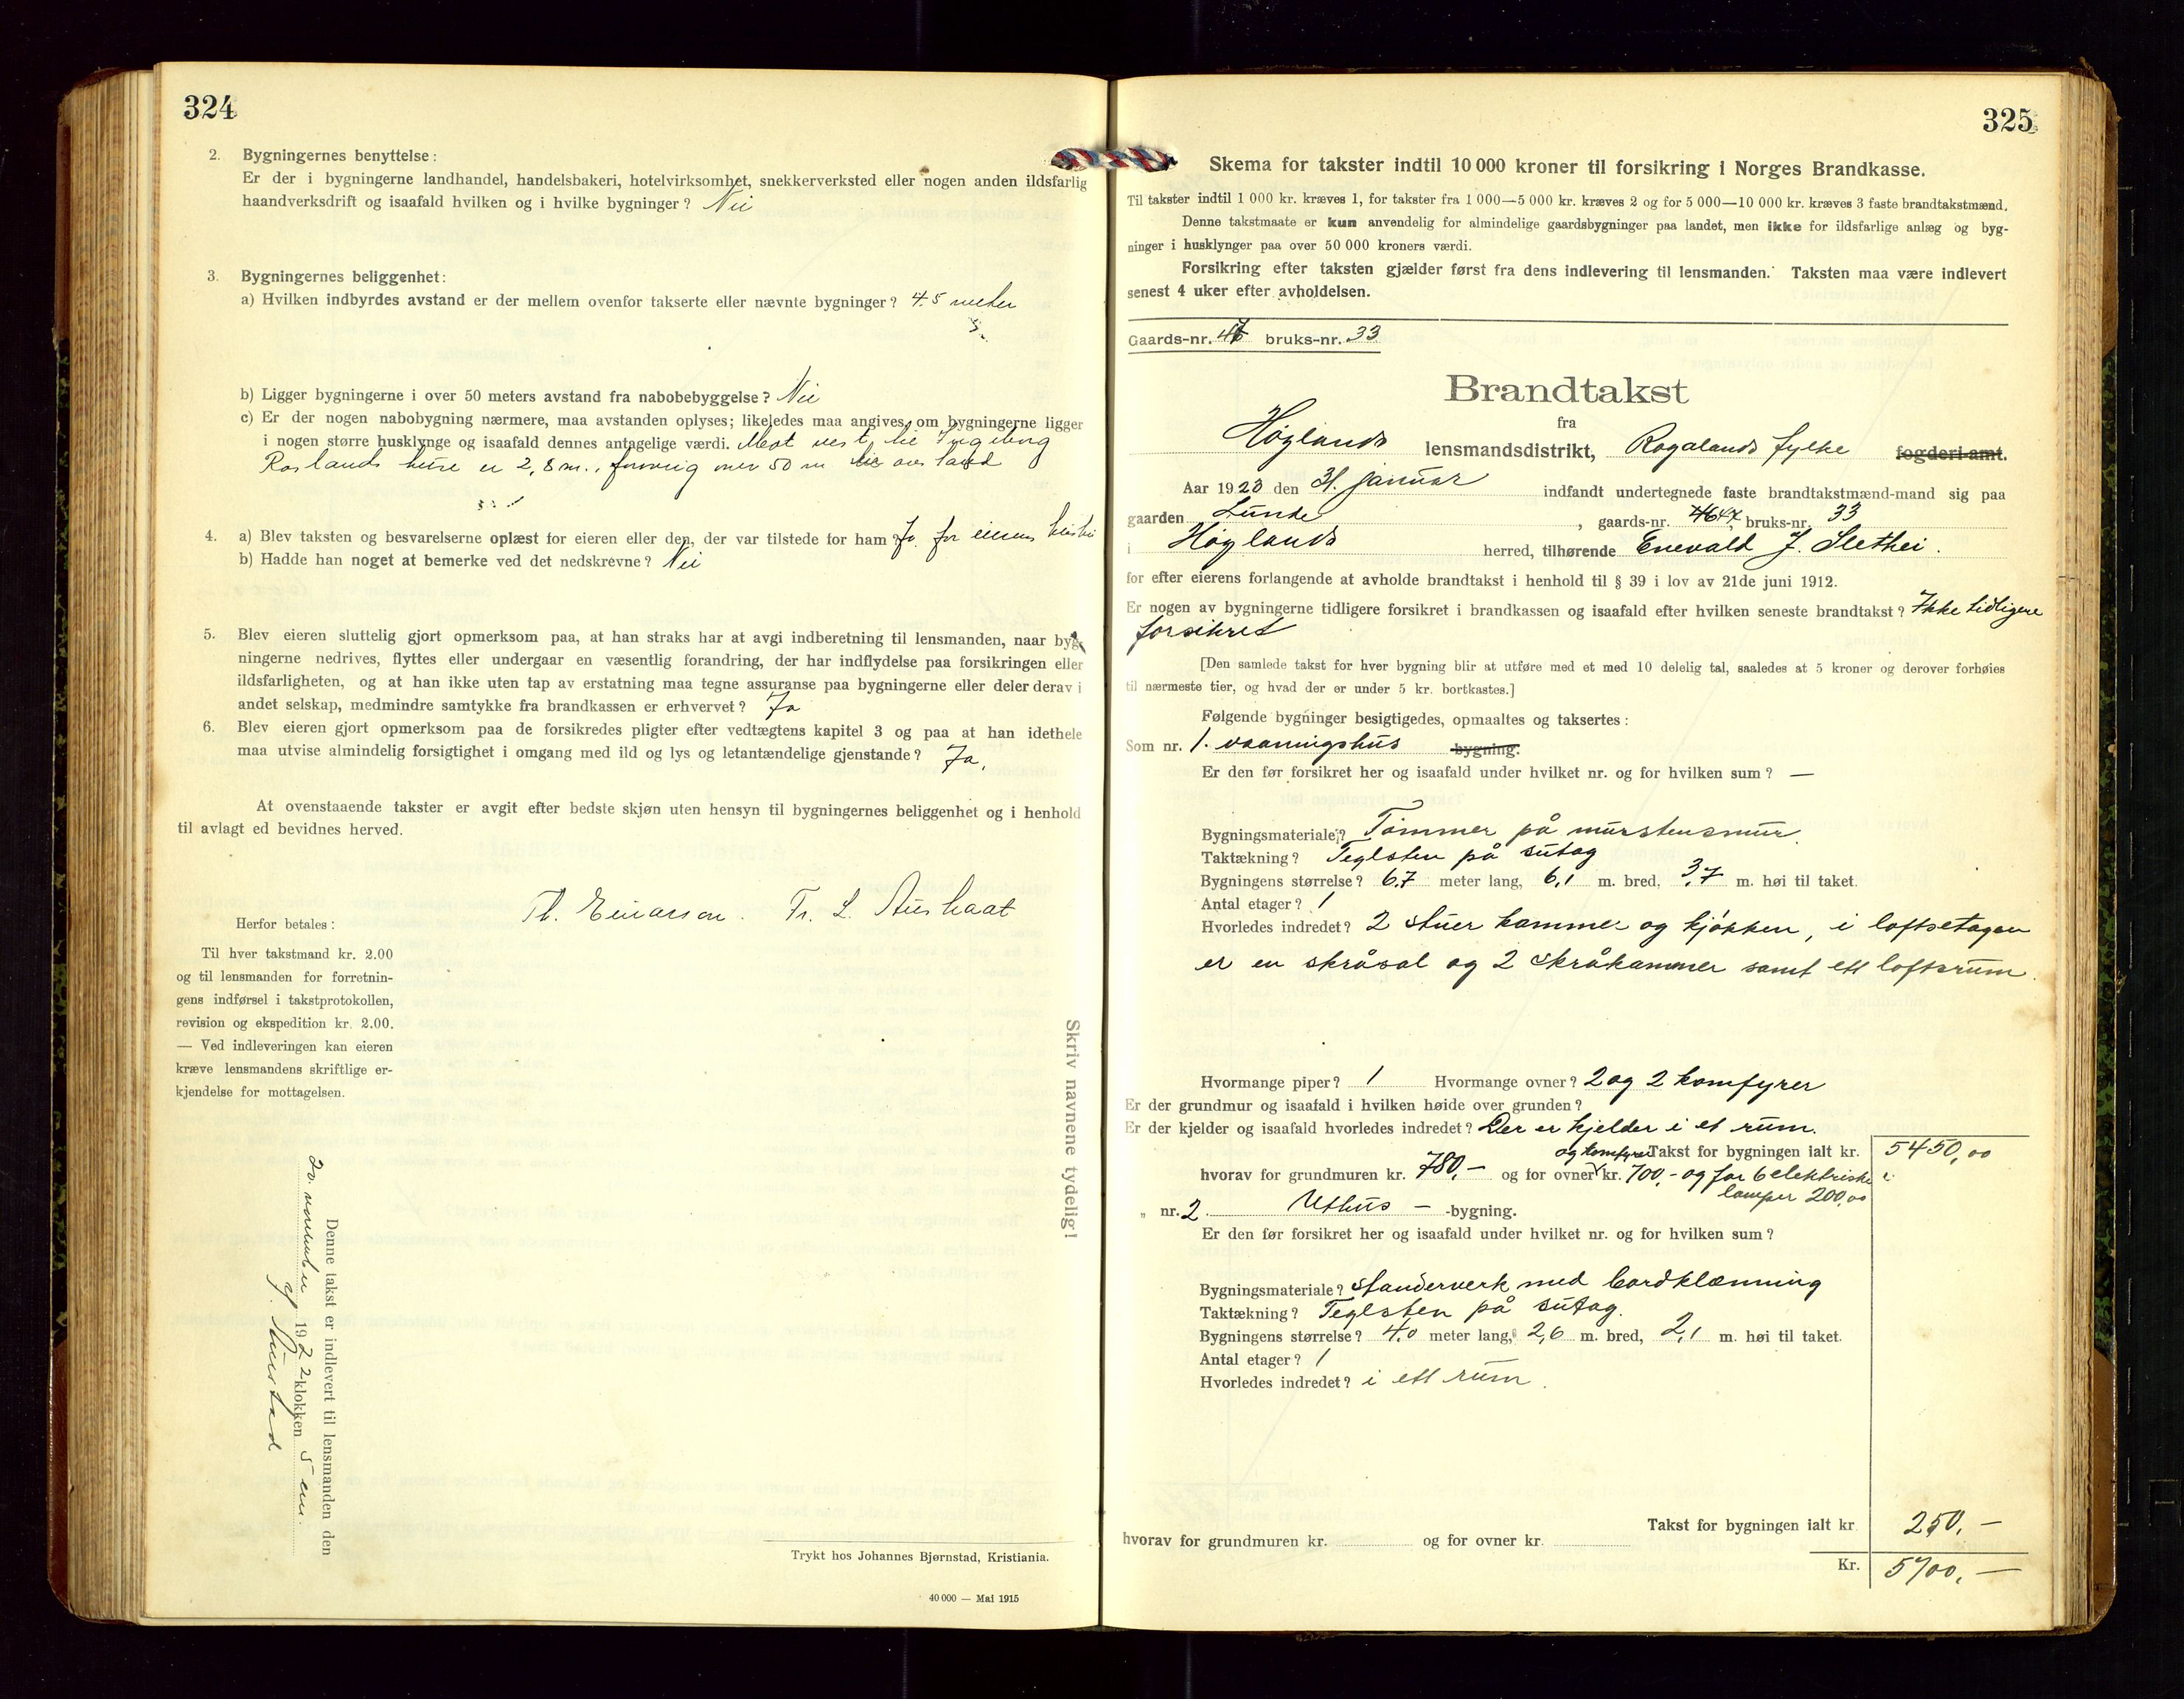 324
2. Bygningernes benyttelse:
Er der i bygningerne landhandel, handelsbakeri, hotelvirksomhet, snekkerverksted eller nogen anden ildsfarlig
haandverksdrift og isaafald hvilken og i hvilke bygninger? Nei
3. Bygningernes beliggenhet:
a) Hvilken indbyrdes avstand er der mellem ovenfor takserte eller nævnte bygninger? 4.5 meter
b) Ligger bygningerne i over 50 meters avstand fra nabobebyggelse? Nei
c) Er der nogen nabobygning nærmere, maa avstanden oplyses; likeledes maa angives, om bygningerne ligger
i nogen større husklynge og isaafald dennes antagelige værdi. Mot vest til Ingeborg
Roslands huse er 2,8 m., forøvrig over 50 m
4. a) Blev taksten og besvarelserne oplæst for eieren eller den, der var tilstede for ham? Ja for eierens hustru
b) Hadde han noget at bemerke ved det nedskrevne? Nei
5. Blev eieren sluttelig gjort opmerksom paa, at han straks har at avgi indberetning til lensmanden, naar byg-
ningerne nedrives, flyttes eller undergaar en væsentlig forandring, der har indflydelse paa forsikringen eller
ildsfarligheten, og at han ikke uten tap av erstatning maa tegne assuranse paa bygningerne eller deler derav i
andet selskap, medmindre samtykke fra brandkassen er erhvervet? Ja
6. Blev eieren gjort opmerksom paa de forsikredes pligter efter vedtægtens kapitel 3 og paa at han idethele
maa utvise almindelig forsigtighet i omgang med ild og lys og letantændelige gjenstande? Ja.
At ovenstaaende takster er avgit efter bedste skjøn uten hensyn til bygningernes beliggenhet og i henhold
til avlagt ed bevidnes herved.
Th. Einarson. Fr. L. Aushaat
Herfor betales:
Til hver takstmand kr. 2.00
og til lensmanden for forretnin-
gens indførsel i takstprotokollen,
revision og ekspedition kr. 2.00.
— Ved indleveringen kan eieren
kræve lensmandens skriftlige er-
kjendelse for mottagelsen.
Skriv navnene tydelig!
Denne takst er indlevert til lensmanden den
20. november 1922 klokken 5 em.
Aurstad
Trykt hos Johannes Bjørnstad, Kristiania.
40 000 — Mai 1915
325
Skema for takster indtil 10 000 kroner til forsikring i Norges Brandkasse.
Til takster indtil 1 000 kr. kræves 1, for takster fra 1 000—5 000 kr. kræves 2 og for 5 000—10 000 kr. kræves 3 faste brandtakstmænd.
Denne takstmaate er kun anvendelig for almindelige gaardsbygninger paa landet, men ikke for ildsfarlige anlæg og byg-
ninger i husklynger paa over 50 000 kroners værdi.
Forsikring efter taksten gjælder først fra dens indlevering til lensmanden. Taksten maa være indlevert
senest 4 uker efter avholdelsen.
Gaards-nr. 47 bruks-nr. 33
Brandtakst
fra
Høylands lensmandsdistrikt, Rogalands fylke fogderi-amt.
Aar 1923 den 31. januar indfandt undertegnede faste brandtakstmænd-mand sig paa
gaarden Lunde, gaards-nr. 46 47, bruks-nr. 33
i Høylands herred, tilhørende Enevald J. Slethei.
for efter eierens forlangende at avholde brandtakst i henhold til § 39 i lov av 21de juni 1912.
Er nogen av bygningerne tidligere forsikret i brandkassen og isaafald efter hvilken seneste brandtakst? Ikke tidligere
forsikret
[Den samlede takst for hver bygning blir at utføre med et med 10 delelig tal, saaledes at 5 kroner og derover forhøies
til nærmeste tier, og hvad der er under 5 kr. bortkastes.]
Følgende bygninger besigtigedes, opmaaltes og taksertes:
Som nr. 1. vaaningshus bygning.
Er den før forsikret her og isaafald under hvilket nr. og for hvilken sum? —
Bygningsmateriale? Tømmer på murstensmur.
Taktækning? Teglsten på sutag
Bygningens størrelse? 6,7 meter lang, 6,1 m. bred, 3,7 m. høi til taket.
Antal etager? 1
Hvorledes indredet? 2 stuer kammer og kjøkken, i loftsetagen
er en skråsal og 2 skråkammer samt ett loftsrum.
Hvormange piper? 1 Hvormange ovner? 2 og 2 komfyrer
Er der grundmur og isaafald i hvilken høide over grunden?
Er der kjelder og isaafald hvorledes indredet? Der er kjelder i et rum.
og komfyrer Takst for bygningen ialt kr. 5450,00
hvorav for grundmuren kr. 780,— og for ovner kr. 700,- og for 6 elektriske
lamper 200,00
„ nr. 2 Uthus — -bygning.
Er den før forsikret her og isaafald under hvilket nr. og for hvilken sum?
Bygningsmateriale? Standerverk med bordklædning
Taktækning? Teglsten på sutag.
Bygningens størrelse? 4,0 meter lang, 2,6 m. bred, 2,1 m. høi til taket.
Antal etager? 1
Hvorledes indredet? i ett rum.
Takst for bygningen ialt kr 250,—
hvorav for grundmuren kr. og for ovner kr.
Kr. 5700,—